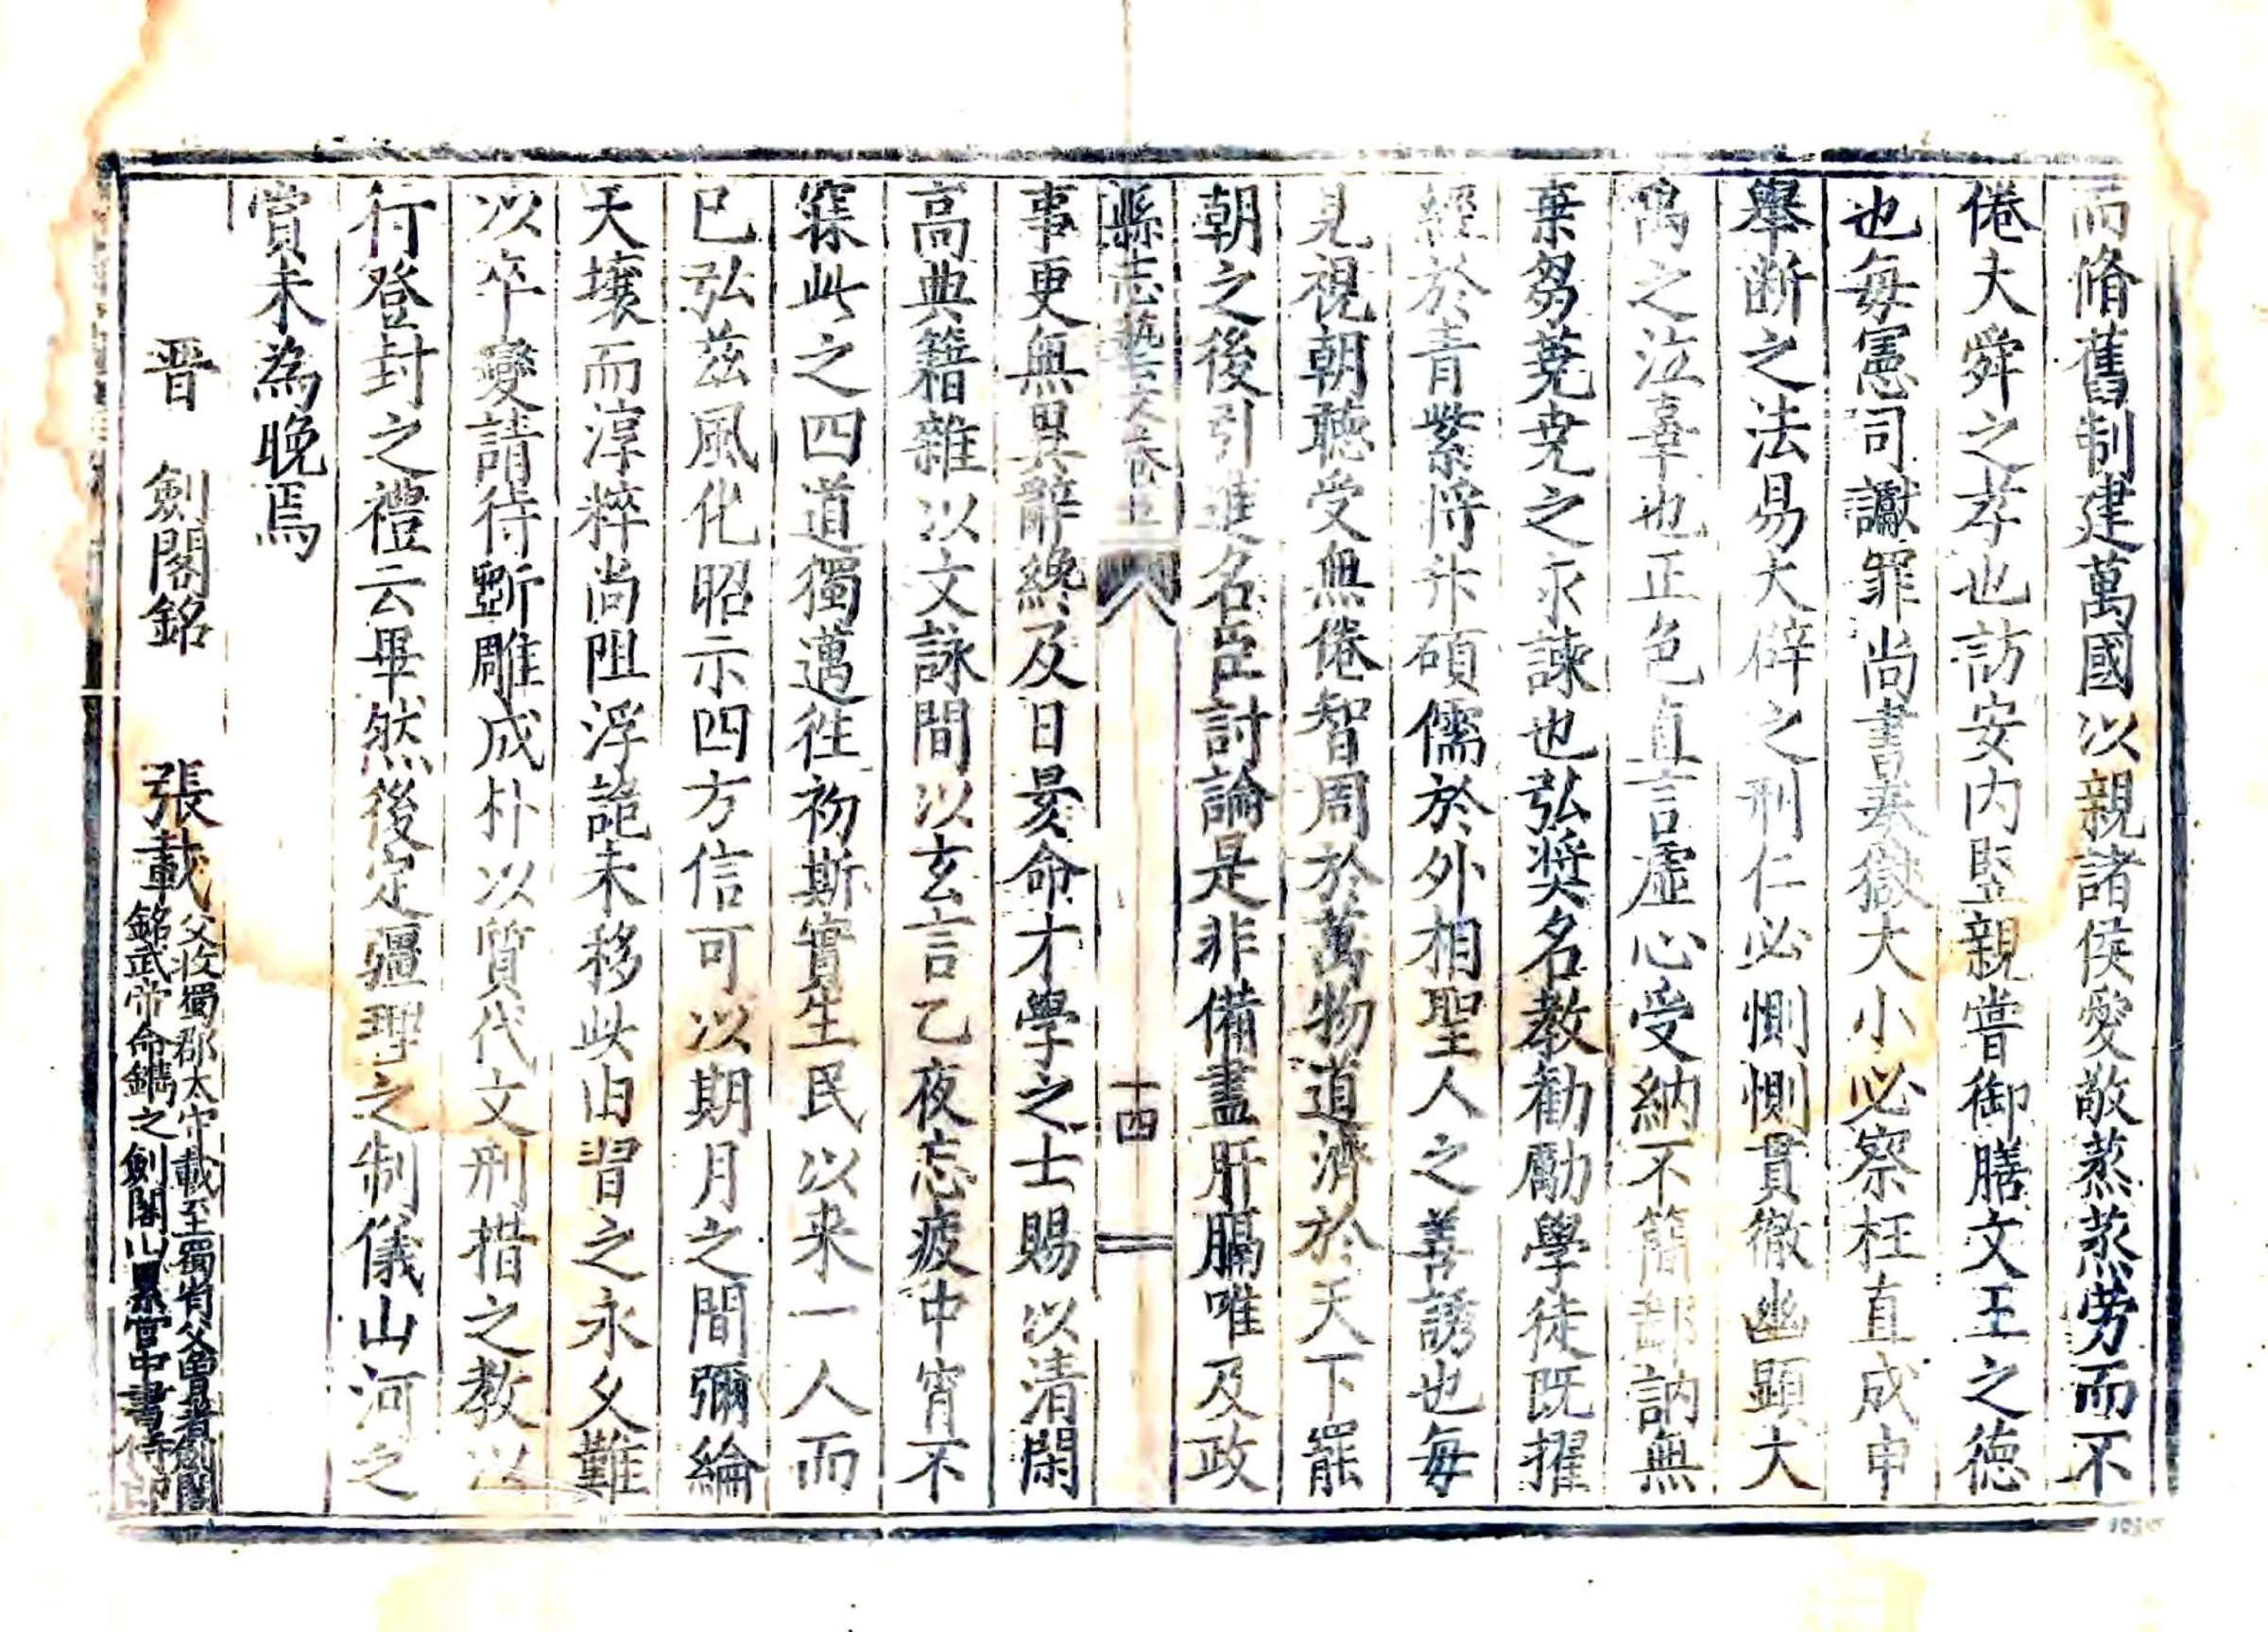 而脩舊制建萬國以親諸侯愛敬蒸蒸劳而不
倦大舜之孝也訪安内竪親嘗御膳文王之德
也每憲司讞罪尚書奏獄大小必察枉直咸申
舉断之法易大辟之刑仁必惻惻貫徹幽顯大
禹之泣辜也正色直言虚心受納不簡鄙訥無
棄芻蕘尭之求諫也弘奨名教勸勵學徒既擢
經於青紫将升碩儒於外相聖人之善誘也每
見視朝聴受無倦智周於萬物道濟於天下罷
朝之後引進名臣討論是非備盡肝膈唯及政
縣志藝文卷五
十四
事更無異辭纔及日昃命才學之士賜以清閑
高典籍雜以文詠間以玄言乙夜忘疲中宵不
寐此之四道獨邁往初斯實生民以来一人而
已弘茲風化昭示四方信可以期月之間彌綸
天壤而淳粹尚阻浮詭未移此由習之永久難
以卒變請待斵雕成朴以質代文刑措之教以
行登封之禮云畢然後定疆理之制儀山河之
賞未為晚焉
晋 劍閣銘 張載父收蜀郡太守載至蜀省父曾見著劍閣
銘武帝命鐫之劍閣山累官中書侍郎